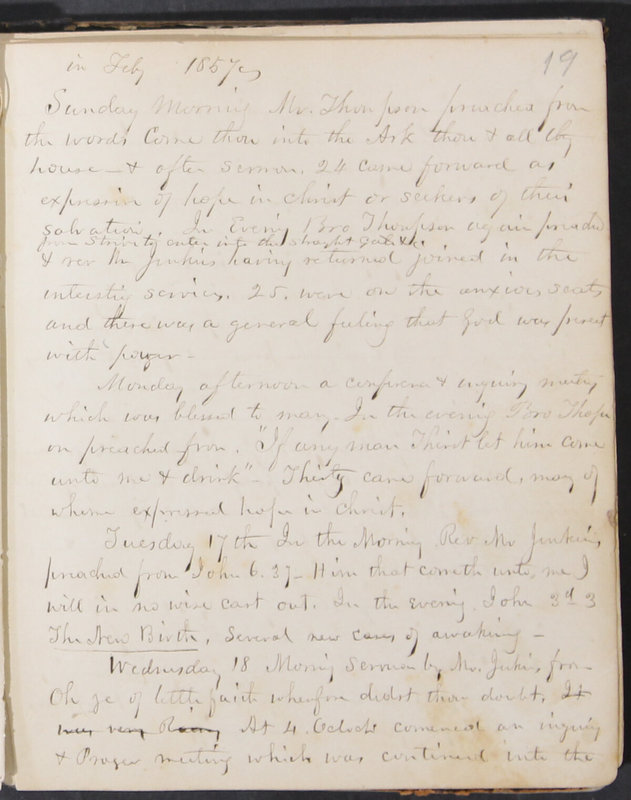 in Feby 1857
19
Sunday Morning Mr. Thompson preached from
the words Come thou into the Ark thou & all thy
house — & after sermon. 24 came forward as
expression of hope in Christ or seekers of their
salvation. In Evenig Bro Thompson again preached
from Strivity enter into the straight gate &c.
& rev Mr Jenkins having returned joined in the
interestig services. 25. were on the anxious seats
and there was a general feeling that God was present
with power —
Monday afternoon a conference & inquiry meetig
which was blessed to many. In the evening Bro Thomps
on preached from. "If any man Thirst let him come
unto me & drink" — Thirty came forward, many of
whom expressed hope in Christ.
Tuesday 17th In the Morning Rev. Mr Jenkins,
preached from John 6.37 — Him that cometh unto me I
will in no wise cast out. In the Evening. John 3d 3
The New Birth. Several new cases of awaking —
Wednesday 18 Mornig Sermon by Mr. Jenkins from
Oh ye of little faith wherefore didst thou doubt. It
was very Rainy At 4. Oclock commenced an inquiry
& Prayer meeting which was continued into the